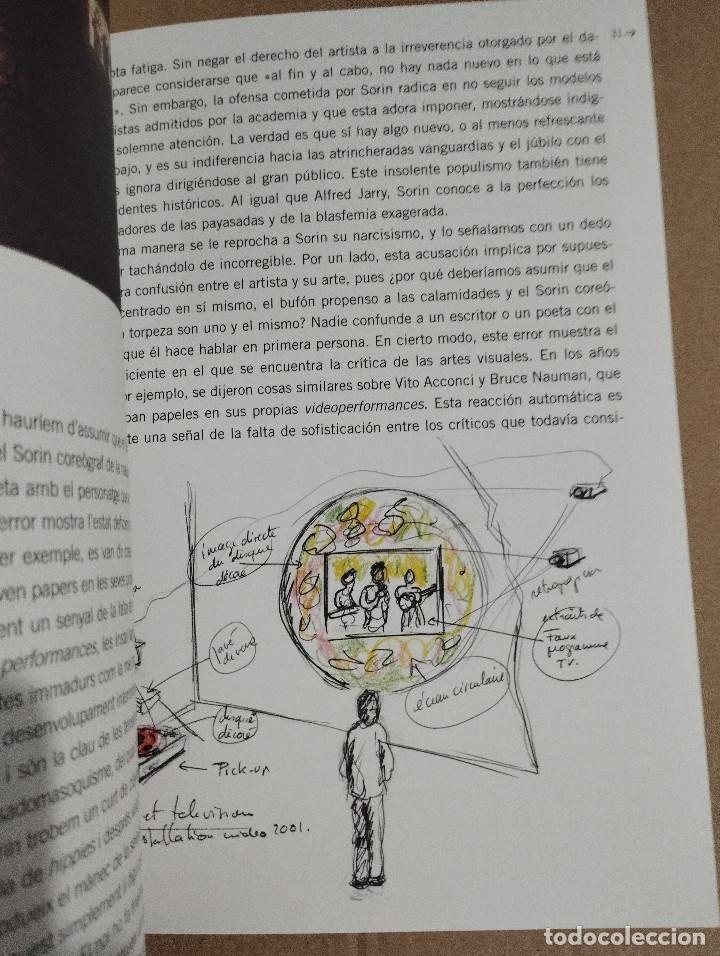 ota fatiga. Sin negar el derecho del artista a la irreverencia otorgado por el da-
parece considerarse que «al fin y al cabo, no hay nada nuevo en lo que está
». Sin embargo, la ofensa cometida por Sorin radica en no seguir los modelos
istas admitidos por la academia y que esta adora imponer, mostrándose indig-
solemne atención. La verdad es que sí hay algo nuevo, o al menos refrescante
bajo, y es su indiferencia hacia las atrincheradas vanguardias y el júbilo con el
s ignora dirigiéndose al gran público. Este insolente populismo también tiene
dentes históricos. Al igual que Alfred Jarry, Sorin conoce a la perfección los
adores de las payasadas y de la blasfemia exagerada.
ma manera se le reprocha a Sorin su narcisismo, y lo señalamos con un dedo
r tachándolo de incorregible. Por un lado, esta acusación implica por supues-
ra confusión entre el artista y su arte, pues ¿por qué deberíamos asumir que el
centrado en sí mismo, el bufón propenso a las calamidades y el Sorin coreó-
torpeza son uno y el mismo? Nadie confunde a un escritor o un poeta con el
que él hace hablar en primera persona. En cierto modo, este error muestra el
iciente en el que se encuentra la crítica de las artes visuales. En los años
or ejemplo, se dijeron cosas similares sobre Vito Acconci y Bruce Nauman, que
ban papeles en sus propias videoperformances. Esta reacción automática es
te una señal de la falta de sofisticación entre los críticos que todavía consi-
hauríem d'assumir que
el Sorin coreògraf de la
eta amb el personatge
error mostra l'estat
er exemple, es van
ven papers en les seves
ent un senyal de la falta
performances, les
tes immadurs com la
desenvolupament
i són la clau de les
adomasoquisme, del
trobem un curt de
de hippies i després
el mànec de la
simplement
image directe
du disque
décoré
retroprojection
extraits de
Faux
programme
TV.
écran circulaire
disque
décoré
Pick-up
et television
stallation video 2001.
todocoleccion
todocoleccion.net